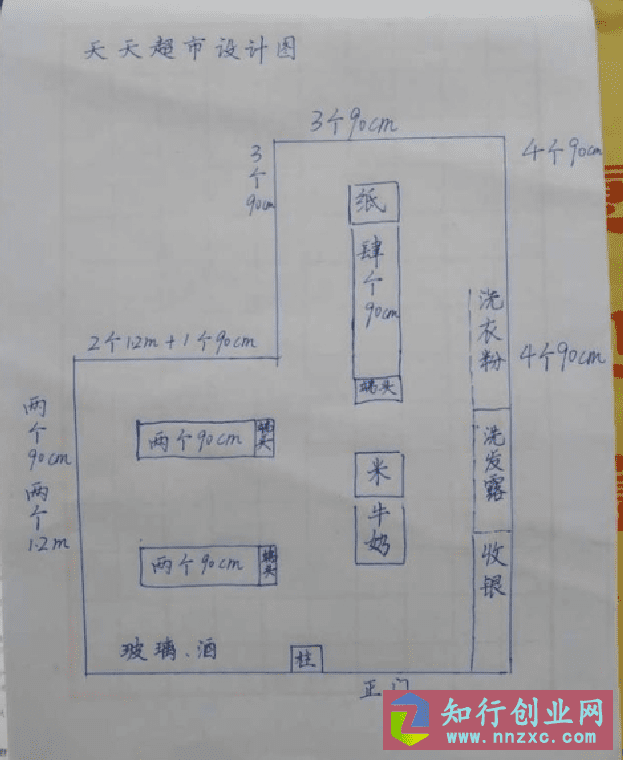 天天超市设计图
3个90cm
3个90cm
4个90cm
纸
肆个90cm
端头
洗衣粉
4个90cm
2个1.2m+1个90cm
两个90cm
两个1.2m
两个90cm
端头
米
洗发露
牛奶
两个90cm
端头
收银
玻璃、酒
柱
正门
知行创业网
www.nnzxc.com